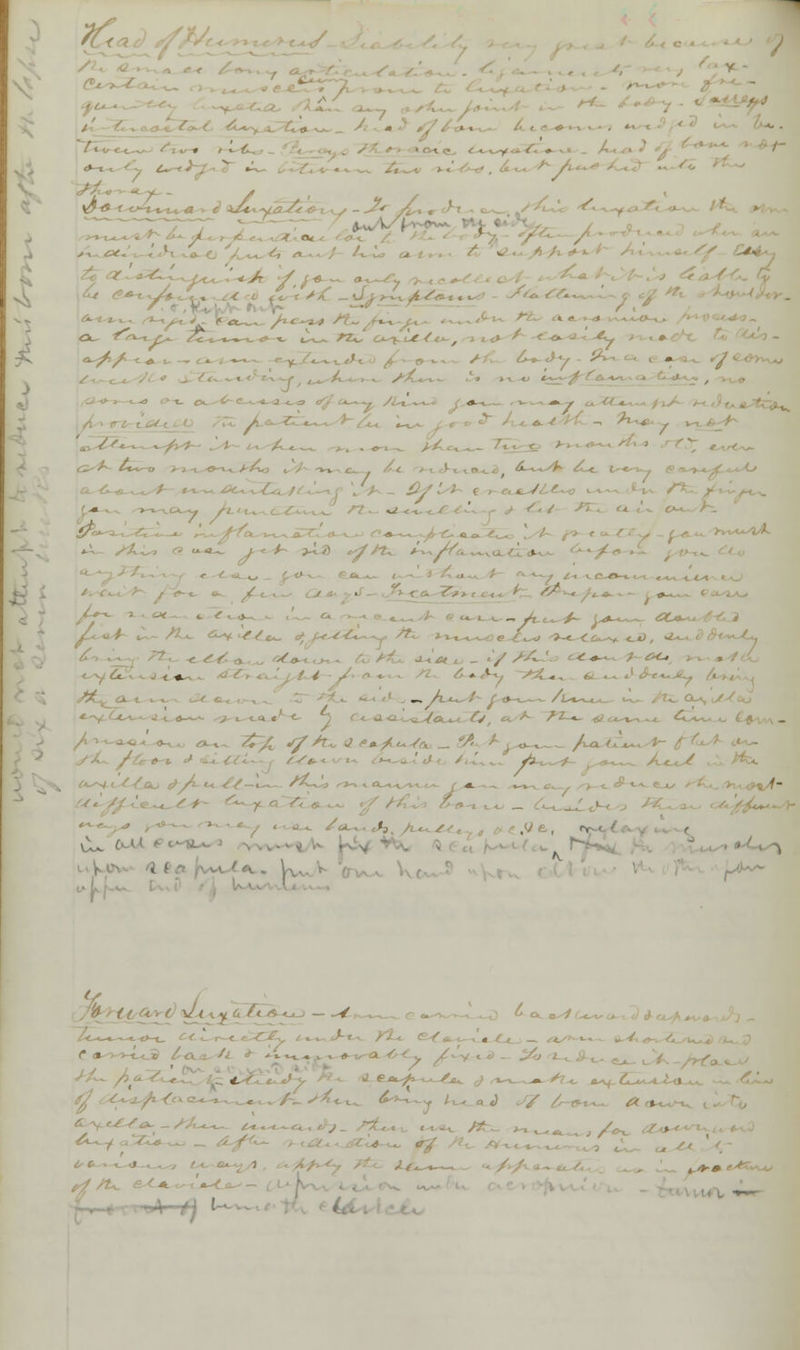 Head of Humerus - Liability very great because of
the small bony articulation. Ligaments very lax.
Certain muscles prone to luxation - more fre-
quently luxated than any other joint in the body.
intercostal luxation - head of bone becomes wedged in be-
tween two ribs - Thoracic luxation - head of bone not
only wedged in between two ribs, but pushed into the
thorax -
Downward Luxation - To produce this luxation the arm
out from the side
must be perpendicular to the body. often produced when an
individual puts out his arm to support himself Easy
to distinguish if you only recollect what it is liable to
be confounded with - Symptoms - Flattening of the shoulder.
arm rigid can pass the finger under the acromion process -
a large tumor in the axilla, not easily made to dis-
appear - arm extended from the body - In a case of some
weeks standing, where there is no inflamation, no
sores or abcesses of any kind you may attempt reduction
provided the patient be in good health - May not
attempt it when more than two months old, even
at two months it may be reduced, but be very careful
about undertaking it - If it crackles under the finger
you may puncture the swelling & let the air out -
Positive inflamation complicates it greatly - you must
in this case get rid of the inflamation before you do
anything else - you can without any inconvenience
wait for a few days - Treatment - Prepare your case
for reduction in a recent case - put your doubled
fist in the axilla & getting the muscles relaxed, suddenly
bring the elbow down to the side - if this dont do, make
extension straight from the body then suddenly bring
the arm down to the side - put your knee in the axilla
extension made by assistants, at the same time com-
pression on top of the scapula - Put your patient flat on
the floor & sitting down beside him put your heel in the
axilla & pull - in this manner you may reduce the most
difficult luxation of this bone - besides these different
ways you may use bands, pulleys &c,
relaxing
in all cases must fix the scapula, the muscles
upon scapula. put one hand upon elbow the other upon
upper end of humerus
Forward Luxation - Arm carried backward & upwards -
tumor directly under the clavicle - arm shortened and
carried back & immovably fixed - To reduce it - place
the patient steady the scapula & make extension in line
of displacement - then bring head of bone down into
axilla - then inwards - then use the means for downward
luxation - After reduction of the Humerus in all its
various ways, apply the same apparatus as in fracture
of the clavicle - depression under acromion - tumor
beneath clavicle
would not attempt to reduce this bone after the lapse
of six a seven weeks